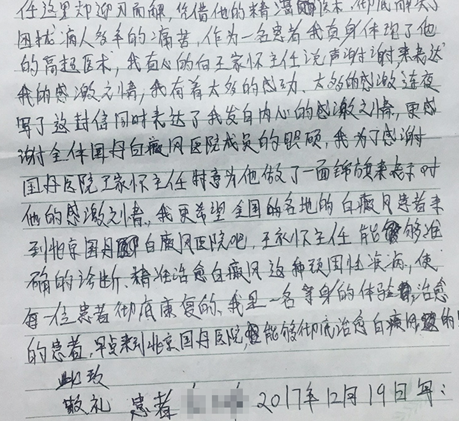 任这里却迎刃而解，凭借他的精湛医术，彻底解决了
困扰病人多年的痛苦，作为一名患者我负身体现了他
的高超医术，我直心的向王家怀主任说声谢谢来表达
我的感激之情，我有着太多的感动、太多的感激连夜
写了这封信同时表达了我发自内心的感激之情，要感
谢全体国丹白癜风医院成员的照顾，我为了感谢
国丹医院王家怀主任特意为他做了一面锦旗来表示对
他的感激之情，我更希望全国的各地的白癜风患者来
到北京国丹白癜风医院吧，王家怀主任能够准
确的诊断、精准治愈白癜风这种顽固性疾病，使
每一位患者彻底康复的、我是一名等身的体验者，治愈
的患者，早点来到北京国丹医院，能够彻底治愈白癜风的
此致
敬礼 患者 2017年12月19日写：